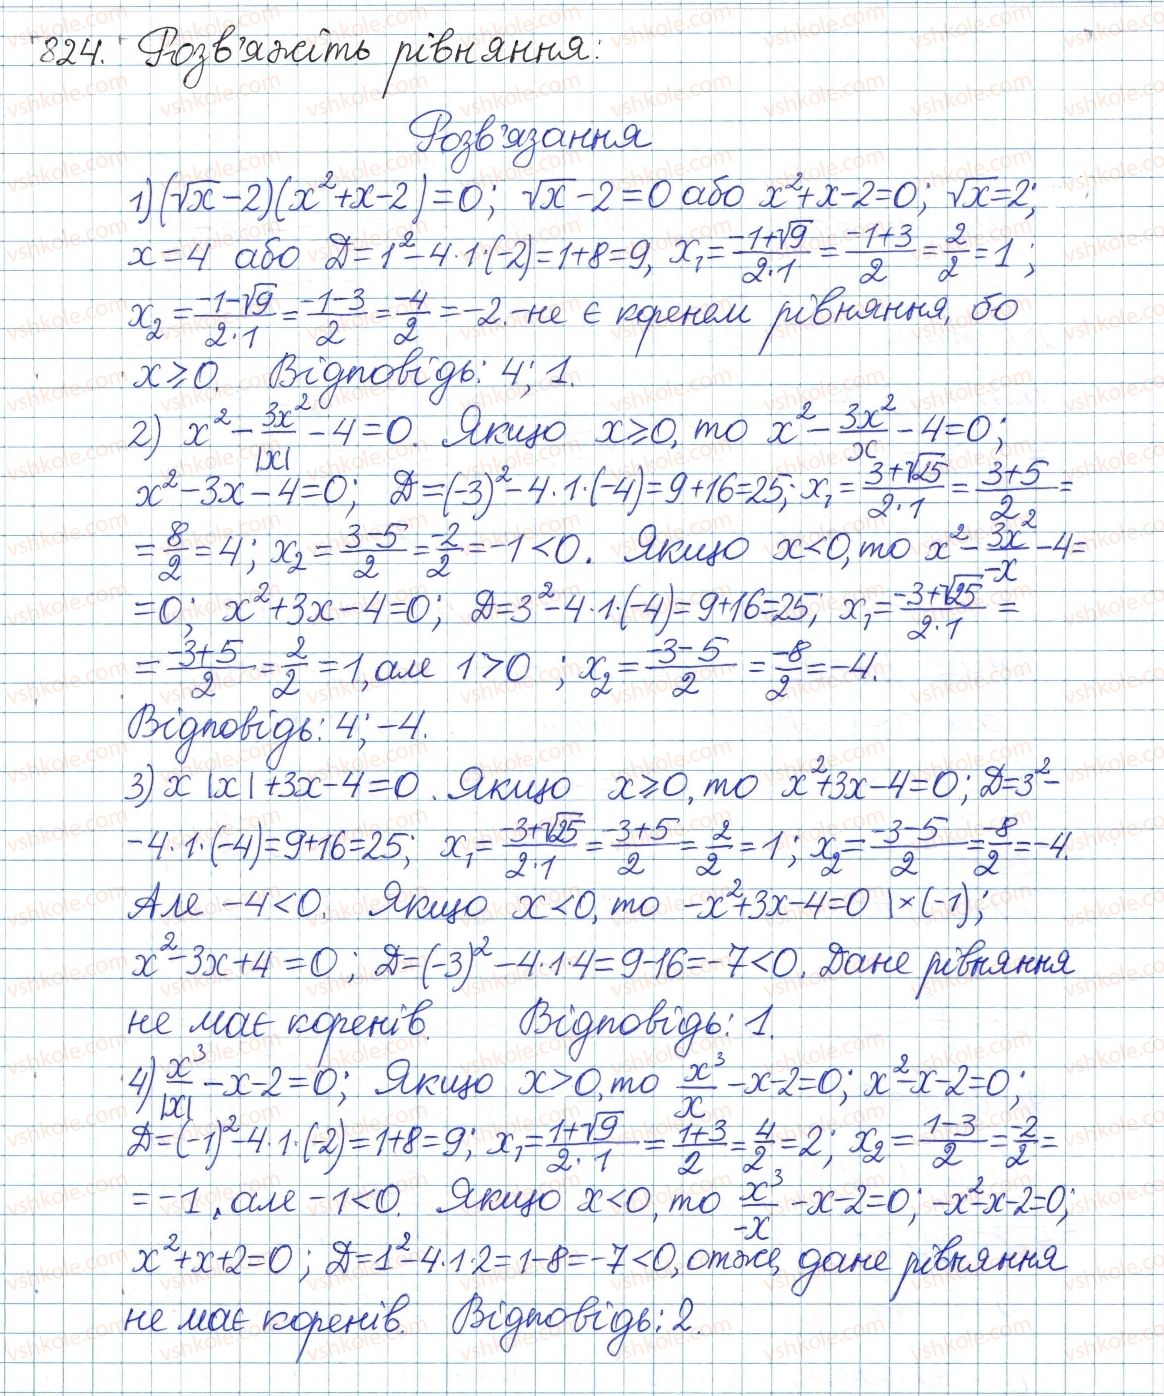 824. Розв'яжіть рівняння:
Розв'язання
1) (√x - 2)(x² + x - 2) = 0; √x - 2 = 0 або x² + x - 2 = 0; √x = 2;
x = 4 або Д = 1² - 4·1·(-2) = 1 + 8 = 9, x₁ = (-1+√9)/(2·1) = (-1+3)/2 = 2/2 = 1;
x₂ = (-1-√9)/(2·1) = (-1-3)/2 = -4/2 = -2. - не є коренем рівняння, бо
x ≥ 0. Відповідь: 4; 1.
2) x² - 3x²/|x| - 4 = 0. Якщо x ≥ 0, то x² - 3x²/x - 4 = 0;
x² - 3x - 4 = 0; Д = (-3)² - 4·1·(-4) = 9 + 16 = 25; x₁ = (3+√25)/(2·1) = (3+5)/2 =
= 8/2 = 4; x₂ = (3-5)/2 = -2/2 = -1 < 0. Якщо x < 0, то x² - 3x²/-x - 4 =
= 0; x² + 3x - 4 = 0; Д = 3² - 4·1·(-4) = 9 + 16 = 25; x₁ = (-3+√25)/(2·1) =
= (-3+5)/2 = 2/2 = 1, але 1 > 0; x₂ = (-3-5)/2 = -8/2 = -4.
Відповідь: 4; -4.
3) x|x| + 3x - 4 = 0. Якщо x ≥ 0, то x² + 3x - 4 = 0; Д = 3² -
- 4·1·(-4) = 9 + 16 = 25; x₁ = (-3+√25)/(2·1) = (-3+5)/2 = 2/2 = 1; x₂ = (-3-5)/2 = -8/2 = -4.
Але -4 < 0. Якщо x < 0, то -x² + 3x - 4 = 0 |×(-1);
x² - 3x + 4 = 0; Д = (-3)² - 4·1·4 = 9 - 16 = -7 < 0. Дане рівняння
не має коренів. Відповідь: 1.
4) x³/|x| - x - 2 = 0; Якщо x > 0, то x³/x - x - 2 = 0; x² - x - 2 = 0;
Д = (-1)² - 4·1·(-2) = 1 + 8 = 9; x₁ = (1+√9)/(2·1) = (1+3)/2 = 4/2 = 2; x₂ = (1-3)/2 = -2/2 =
= -1, але -1 < 0. Якщо x < 0, то x³/-x - x - 2 = 0; -x² - x - 2 = 0;
x² + x + 2 = 0; Д = 1² - 4·1·2 = 1 - 8 = -7 < 0, отже, дане рівняння
не має коренів. Відповідь: 2.